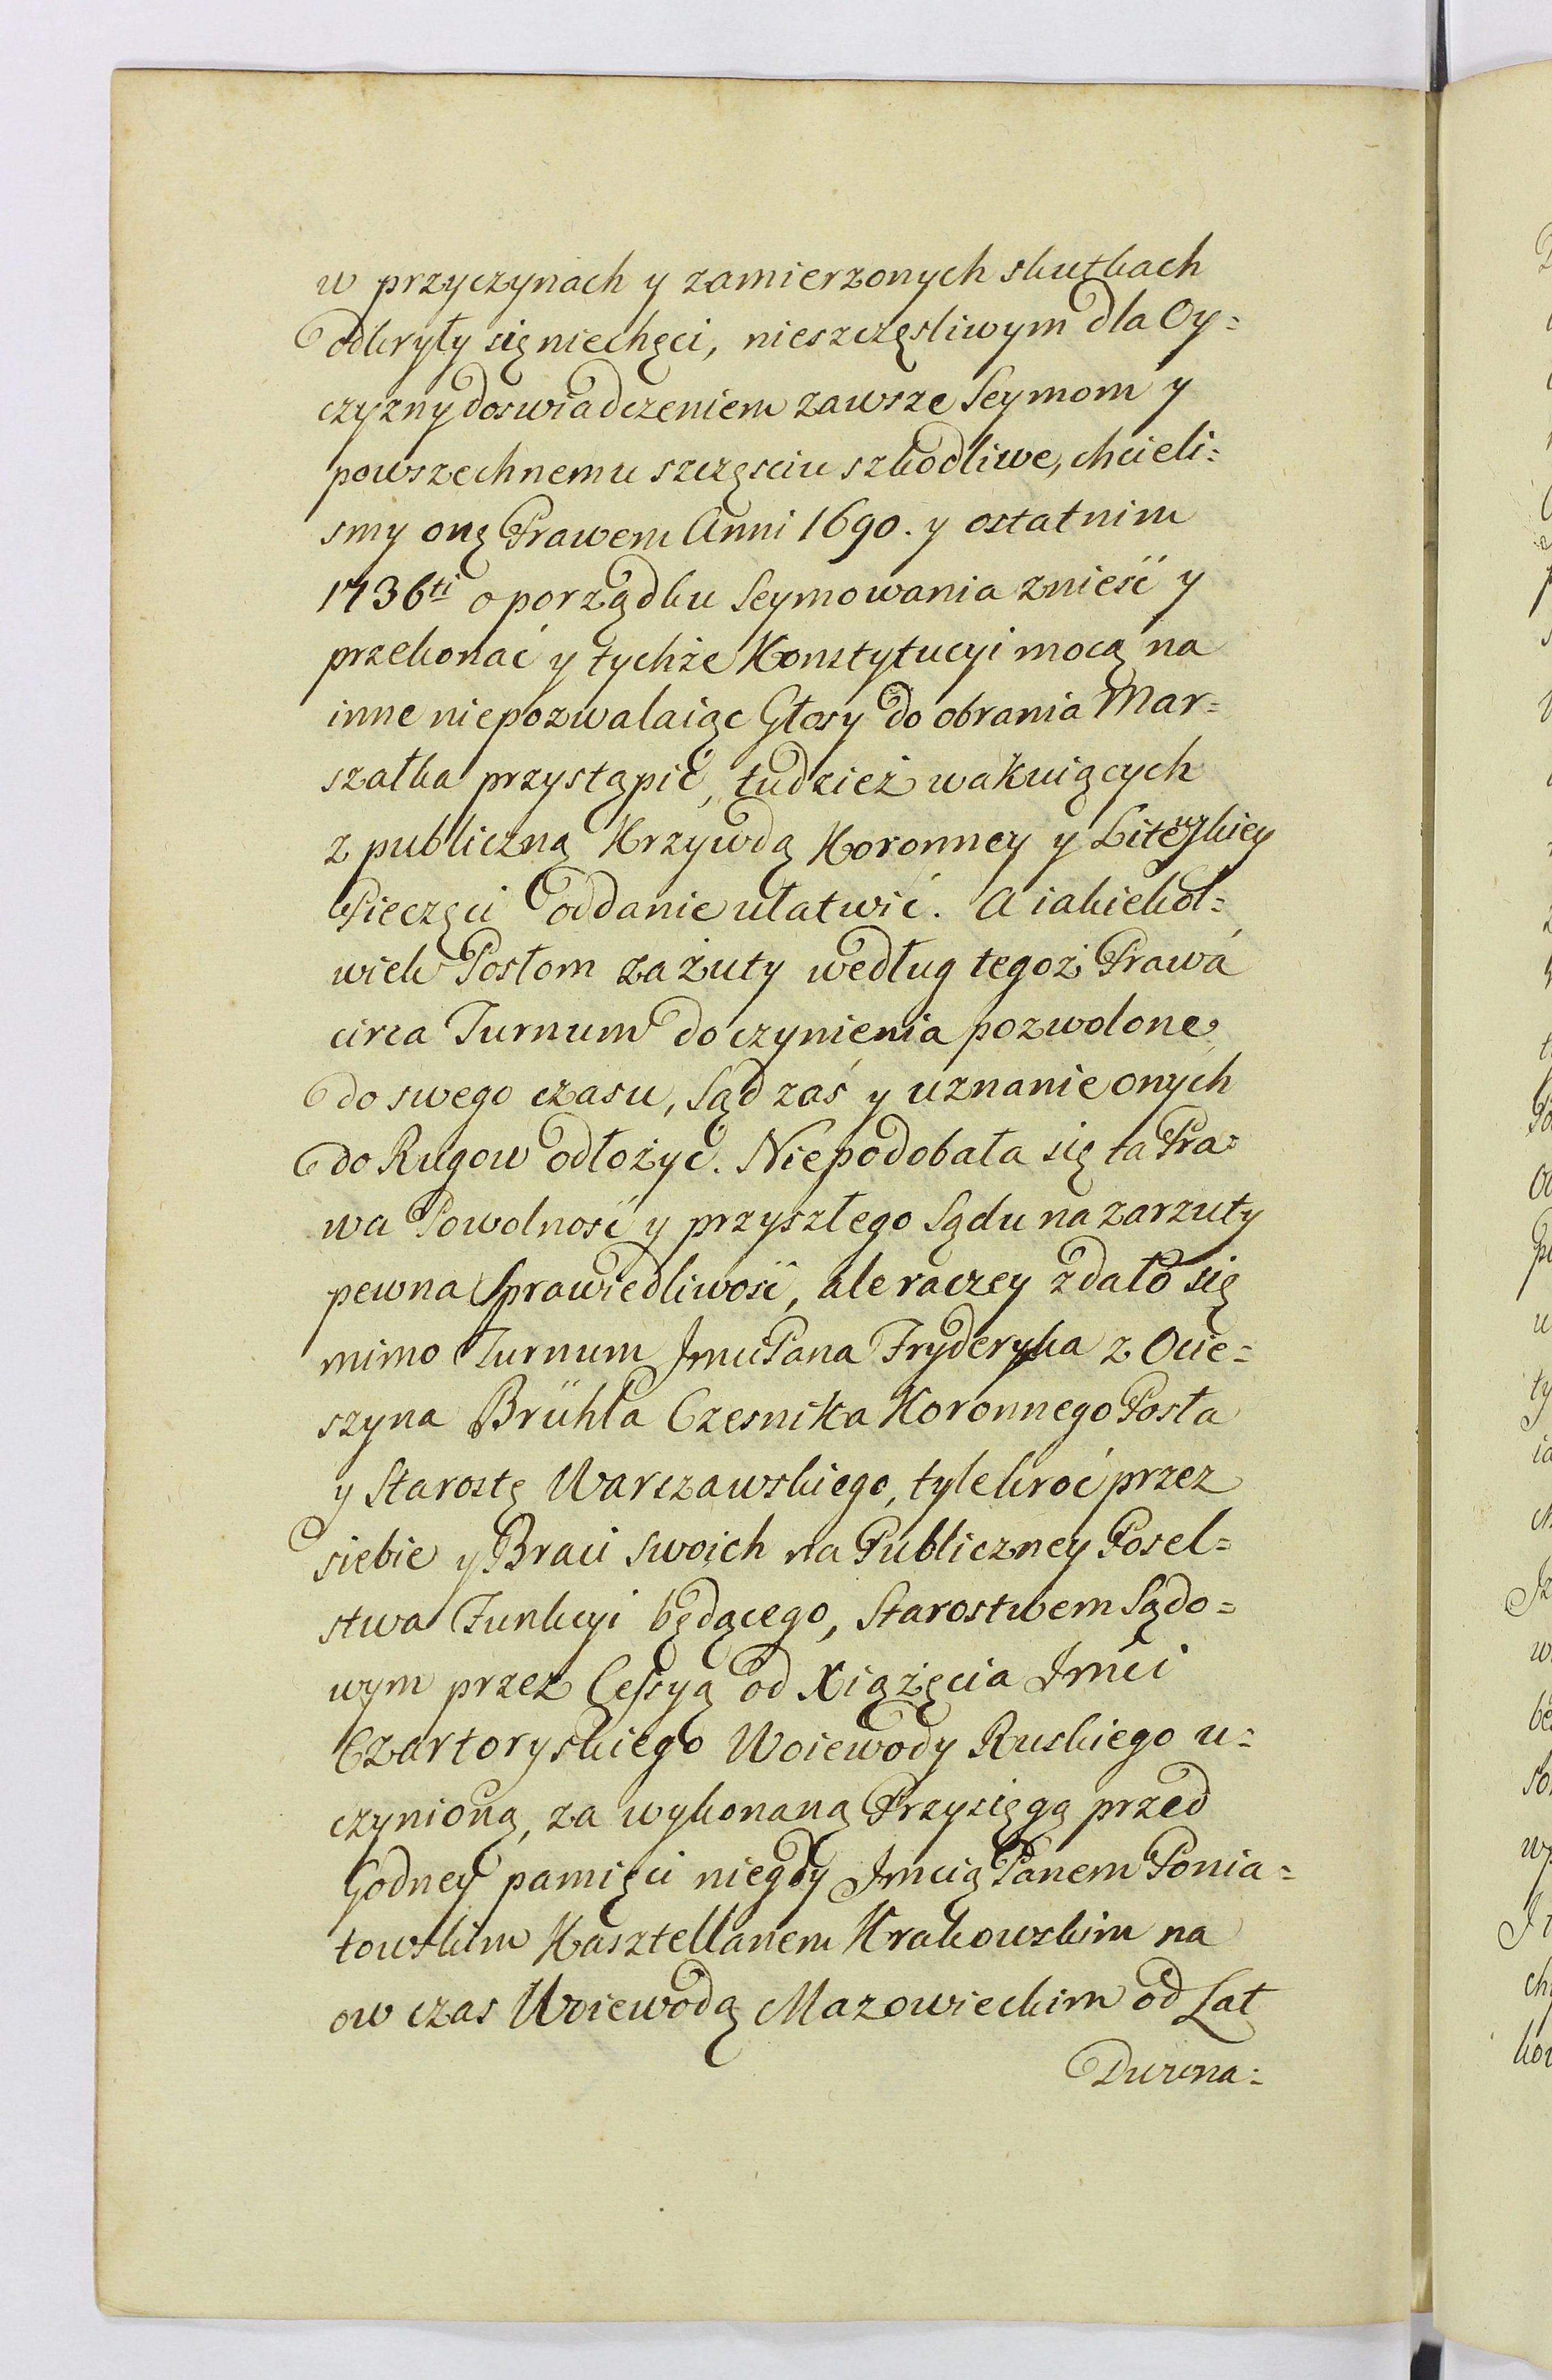 w przyczynach y zamierzonych skutkach
odkryły się niechęci, nieszczęsliwym dla Oy=
czyzny doswiadczeniem zawsze Seymom y
powszechnemu szczęsciu szkodliwe, chcieli=
smy onę Prawem Anni 1690. y ostatnim
1736ti o porządku Seymowania znieść y
przekonać y tychże Konstytucyi mocą na
inne niepozwalaiąc Głosy do obrania Mar=
szałka przystąpić, tudzież wakuiących
z publiczną Krzywdą Koronney y Litewskiey
Pieczęci oddanie ułatwić. A iakiekol=
wiek Posłom zażuty według tegoż Prawa
circa Turnum do czynienia pozwolone
do swego czasu, Sąd zaś y uznanie onych
do Rugow odłożyć. Niepodobała się ta Pra=
wa Powolność y przyszłego Sądu na zarzuty
pewna Sprawiedliwość, ale raczey zdało się
mimo Turnum Jmci Pana Fryderyka z Ocie=
szyna Brühla Czesnika Koronnego Posła
y Starostę Warszawskiego, tylekroć przez
siebie y Braci swoich na Publiczney Posel=
stwa Funkcyi będącego, Starostwem Sądo=
wym przez Cessyą od Xiążęcia Jmci
Czartoryskiego Woiewody Ruskiego u=
czynioną, za wykonaną Przysięgą przed
Godney pamięci niegdy Jmcią Panem Ponia=
towskim Kasztellanem Krakowskim na
ow czas Woiewodą Mazowieckim od Lat